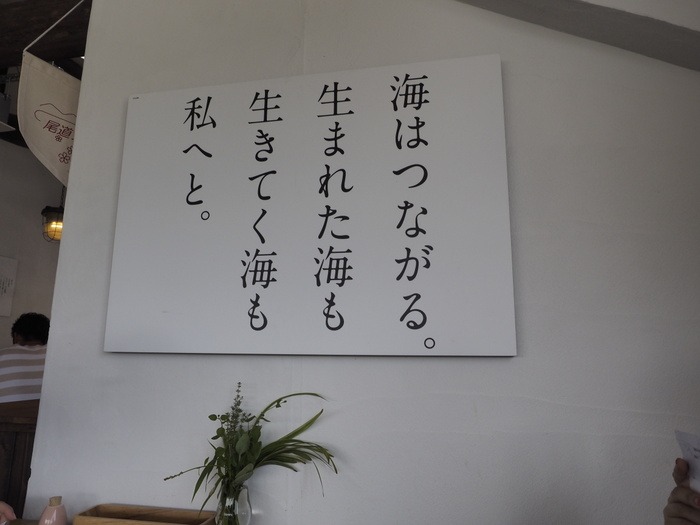 海はつながる。
生まれた海も
生きてく海も
私へと。
尾道